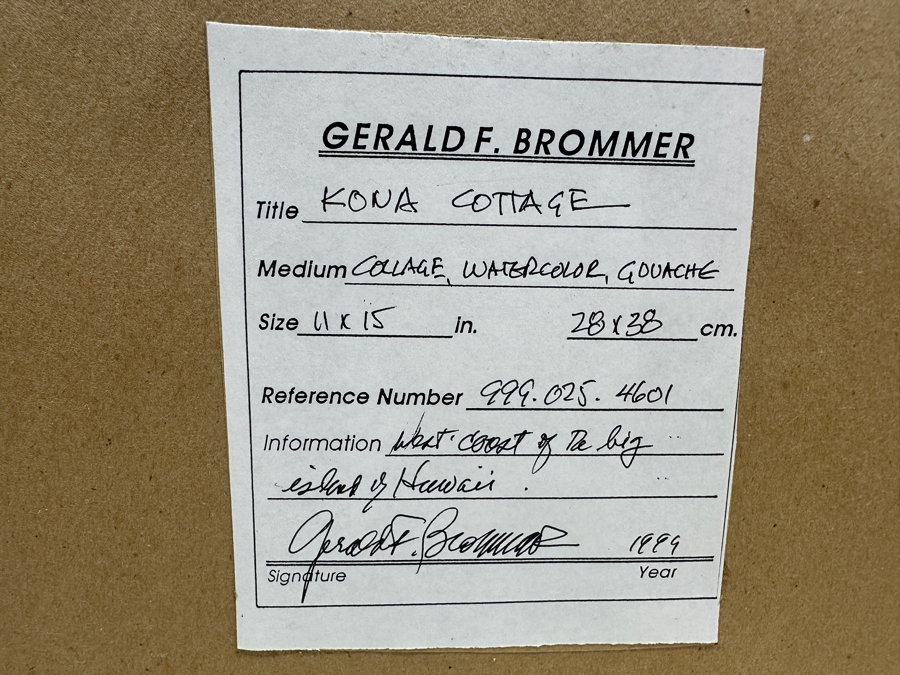 GERALD F. BROMMER
Title KONA COTTAGE
Medium COLLAGE, WATERCOLOR, GOUACHE
Size 11 x 15 in. 28 x 38 cm.
Reference Number 999.025.4601
Information West coast of the big
island of Hawaii.
Gerald F. Brommer 1999
Signature Year